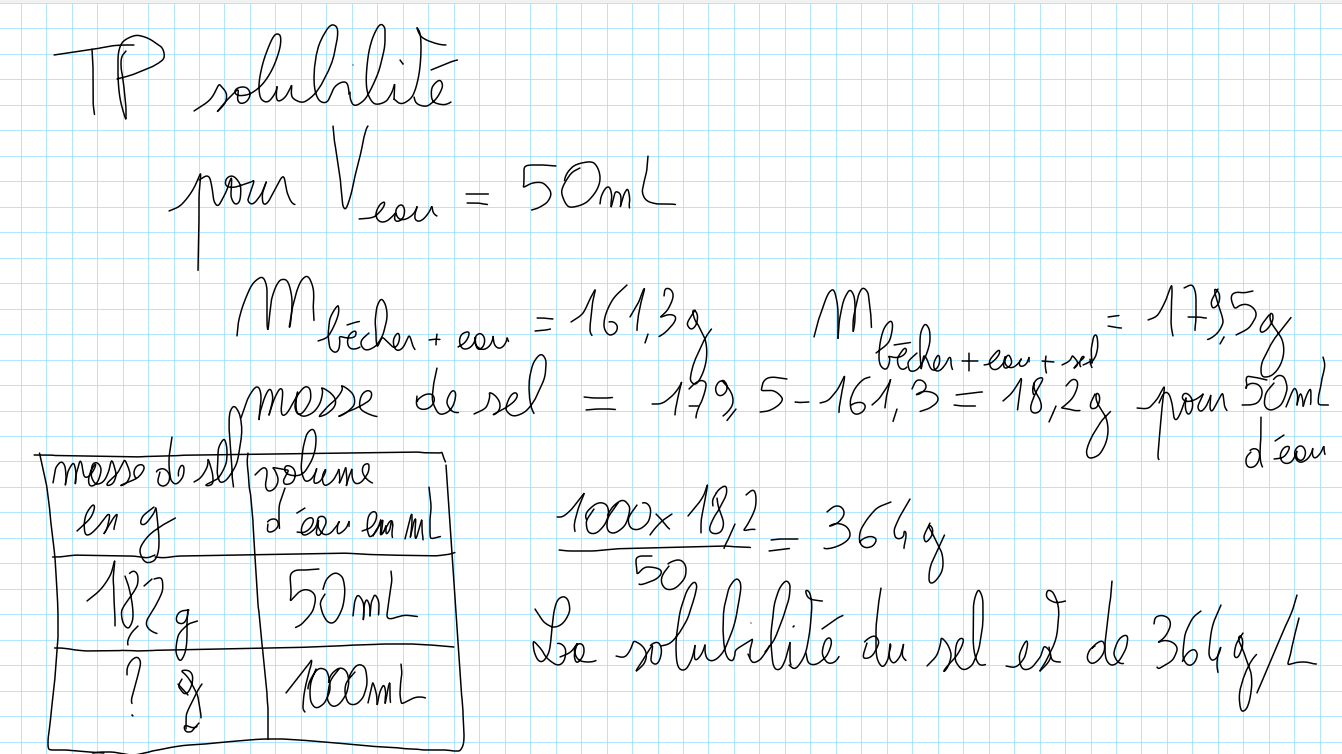 TP solubilité
pour Veau = 50mL
m bêcher + eau = 161,3g m bêcher + eau + sel = 179,5g
masse de sel = 179,5 - 161,3 = 18,2g pour 50mL
d'eau
masse de sel volume
en g d'eau en mL
18,2 g 50mL
? g 1000mL
1000 x 18,2 / 50 = 364 g
La solubilité du sel est de 364g/L